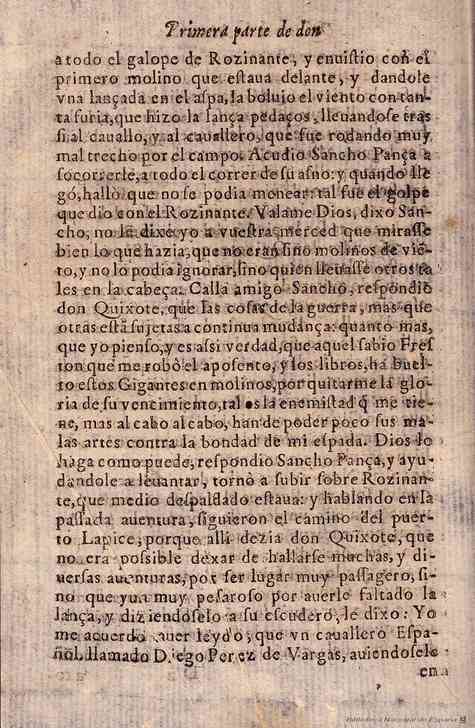 Primera parte de don
a todo el galope de Rozinante, y enuistio con el
primero molino que estaua delante, y dandole
vna lançada en el aspa, la boluio el viento con tan-
ta furia, que hizo la lança pedaços, lleuandose tras
si al cauallo, y al cauallero, que fue rodando muy
mal trecho por el campo. Acudio Sancho Pança a
socorrerle, a todo el correr de su asno: y quando lle
gó, halló que no se podia menear: tal fue el golpe
que dio con el Rozinante. Valame Dios, dixo San-
cho, no le dixe yo a vuestra merced que mirasse
bien lo que hazia, que no eran sino molinos de viẽ-
to, y no lo podia ignorar, sino quien lleuasse otros ta
les en la cabeça. Calla amigo Sancho, respondio
don Quixote, que las cosas de la guerra, mas que
otras estã sujetas a continua mudança: quanto mas,
que yo pienso, y es assi verdad, que aquel sabio Fres
ton que me robò el aposento, y los libros, ha buel-
to estos Gigantes en molinos, por quitarme la glo-
ria de su vencimiento, tal es la enemistad q̃ me tie-
ne, mas al cabo al cabo, han de poder poco sus ma-
las artes contra la bondad de mi espada. Dios lo
haga como puede, respondio Sancho Pança, y ayu-
dandole a leuantar, tornò a subir sobre Rozinan-
te, que medio despaldado estaua: y hablando en la
passada auentura, siguieron el camino del puer-
to Lapice, porque alli dezia don Quixote, que
no era possible dexar de hallarse muchas, y di-
uersas auenturas, por ser lugar muy passagero, si-
no que yua muy pesaroso por auerle faltado la
lança, y diziendoselo a su escudero, le dixo: Yo
me acuerdo auer leydo, que vn cauallero Espa-
ñol, llamado Diego Perez de Vargas, auiendosele
en a
Biblioteca Nacional de España